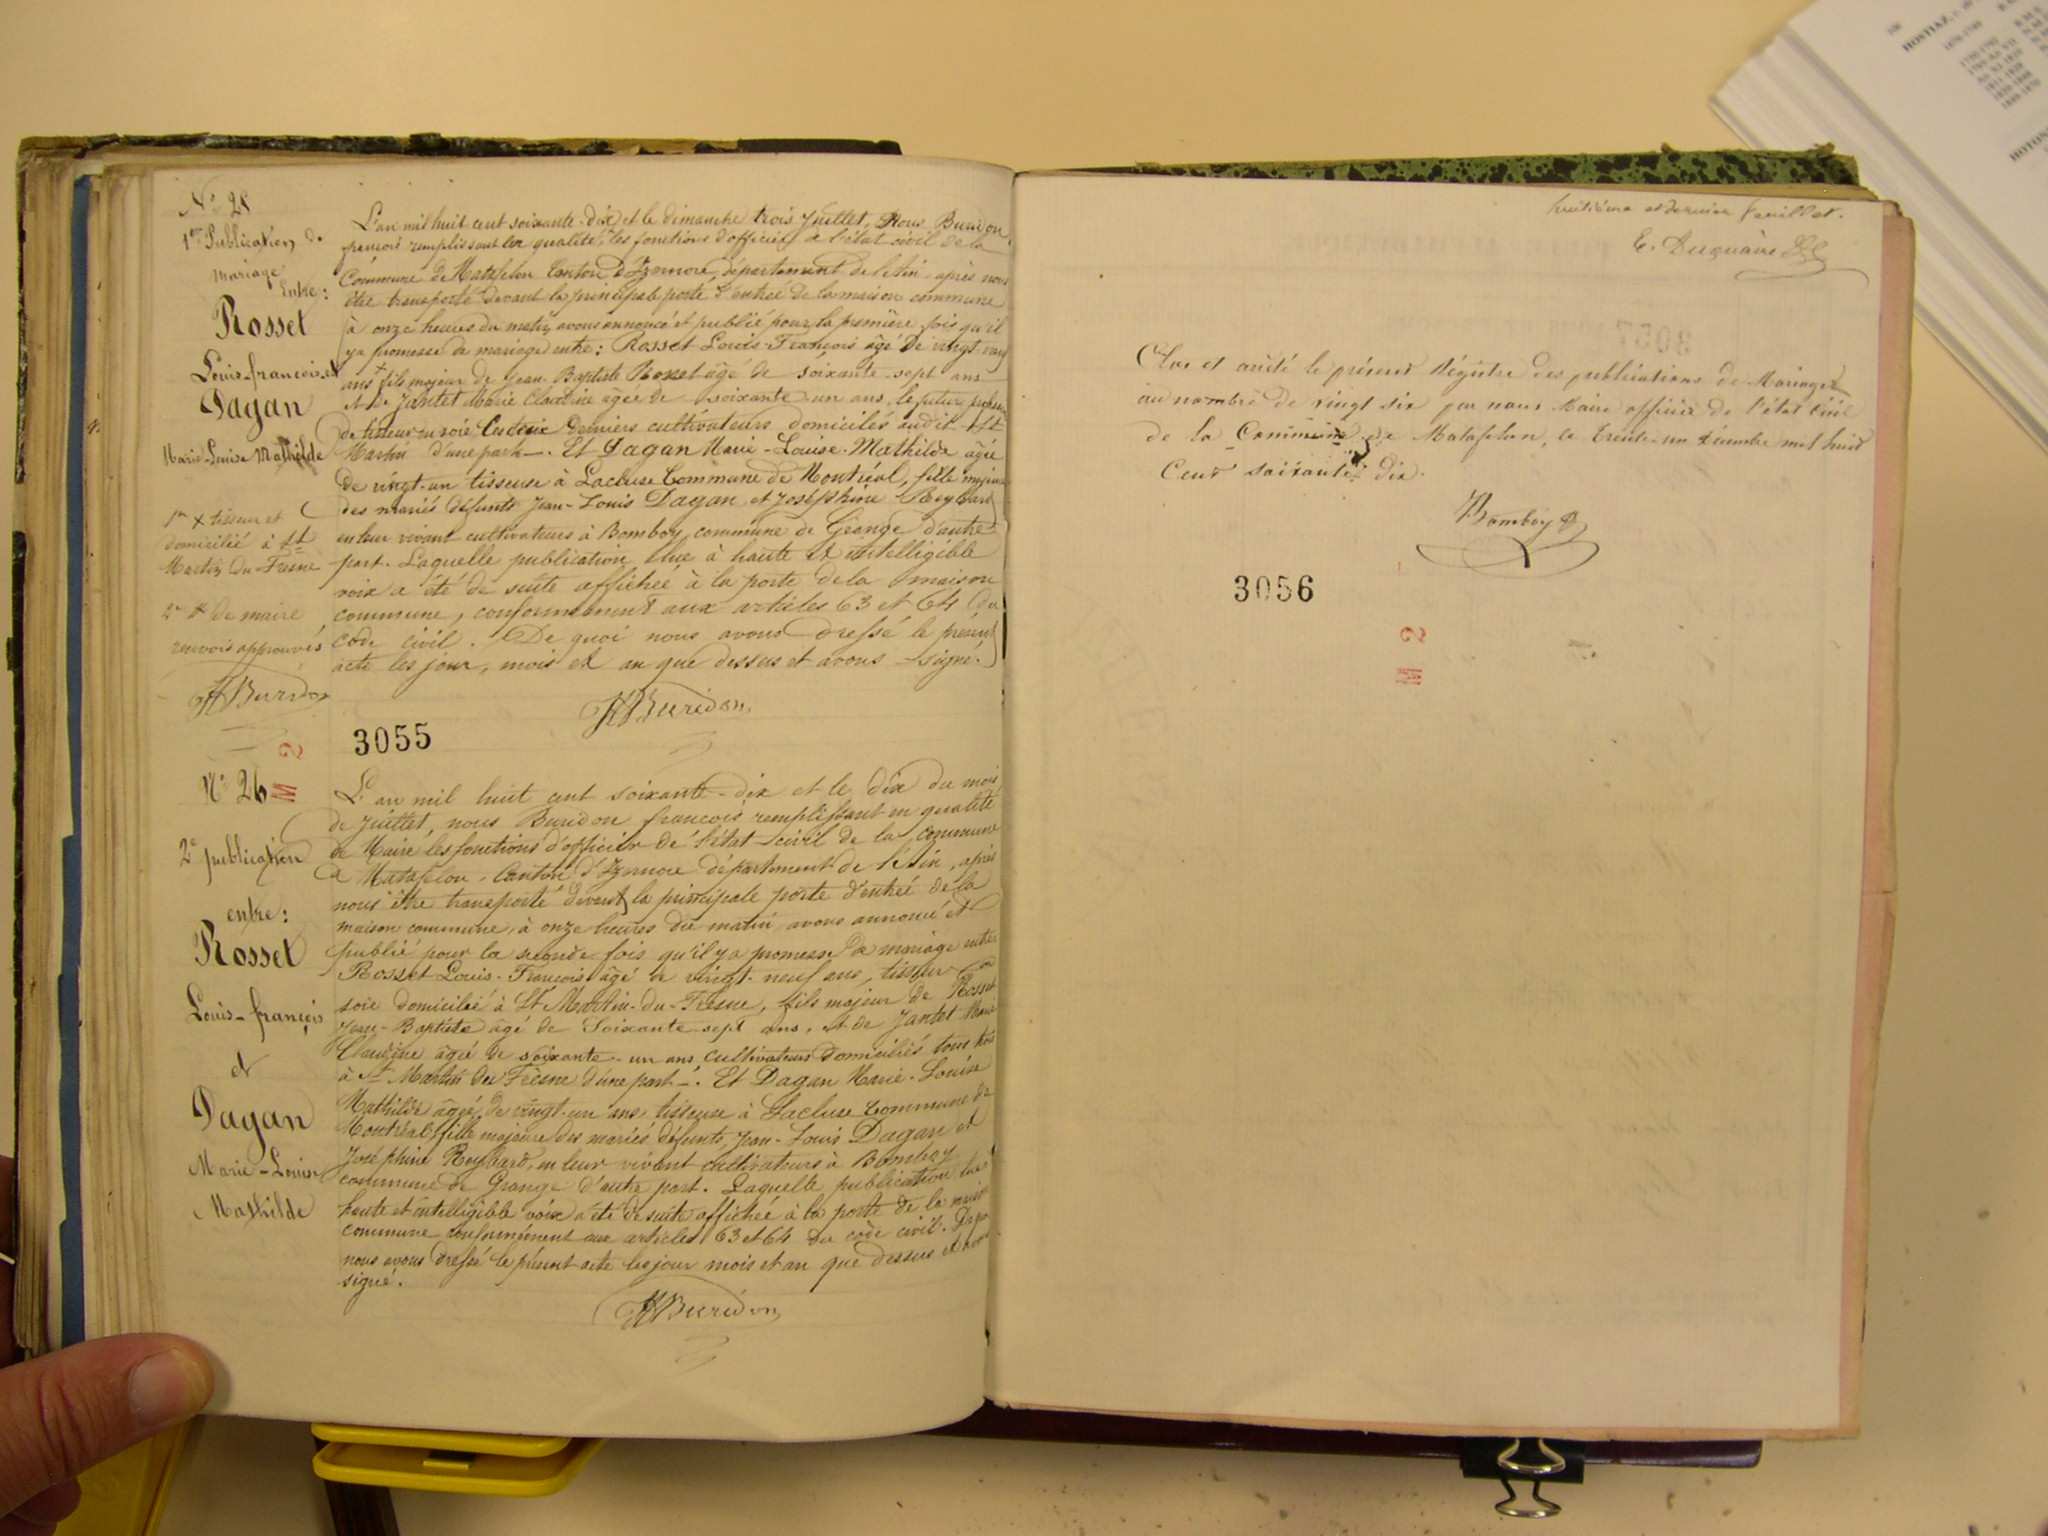 N° 25
1ère Publication de
mariage
entre:
Rosset
Louis-françois et
Dagan
Marie-Louise Mathilde
1er x tisseur et
domicilié à St
Martin du-Fresne
2e x de maire
renvois approuvés
Buridon
L'an mil huit cent soixante-dix et le dimanche trois Juillet, Nous Buridon
françois remplissant en qualité x les fonctions d'officier de l'état civil de la
Commune de Matafelon Canton d'Izernore, département de l'Ain après nous
être transporté devant la principale porte d'entrée de la maison commune
à onze heures du matin avons annoncé et publié pour la première fois qu'il
y a promesse de mariage entre: Rosset Louis-François âgé de vingt neuf
ans x fils majeur de Jean-Baptiste Rosset âgé de soixante-sept ans
et de Jantet Marie Claudine agée de soixante-un ans, le futur
de tisseur en soie les deux derniers cultivateurs domiciliés audit St
Martin d'une part-. Et Dagan Marie-Louise-Mathilde âgée
de vingt-un tisseuse à Lacluse Commune de Montréal, fille majeure
des mariés défunts Jean-Louis Dagan et Joséphine Reybard
en leur vivant cultivateurs à Bomboy commune de Géange d'autre
part. Laquelle publication lue à haute et intelligible
voix a été de suite affichée à la porte de la maison
commune, conformément aux articles 63 et 64 du
code civil. De quoi nous avons dressé le présent
acte les jour, mois et an que dessus et avons signé.
Buridon
3055
M 2
N° 26
2e publication
entre:
Rosset
Louis-françois
et
Dagan
Marie-Louise
Mathilde
L'an mil huit cent soixante-dix et le dix du mois
de Juillet, nous Buridon françois remplissant en qualité
de Maire les fonctions d'officier de l'état-civil de la commune
de Matafelon, Canton d'Izernore département de l'Ain, après
nous être transporté devant la principale porte d'entrée de la
maison commune, à onze heures du matin avons annoncé et
publié pour la seconde fois qu'il y a promesse de mariage entre
Rosset Louis-François âgé de vingt-neuf ans, tisseur en
soie domicilié à St Martin-du-Fresne, fils majeur de Rosset
Jean-Baptiste âgé de Soixante sept ans, et de Jantet Marie
Claudine âgée de soixante-un ans cultivateurs domiciliés tous trois
à St Martin du Fresne d'une part-. Et Dagan Marie-Louise
Mathilde âgée de vingt-un ans tisseuse à Lacluse Commune de
Montréal, fille majeure des mariés défunts, Jean-Louis Dagan et
Joséphine Reybard, en leur vivant cultivateurs à Bomboy
commune de Grange d'autre part. Laquelle publication lue à
haute et intelligible voix a été de suite affichée à la porte de la maison
commune conformément aux articles 63 et 64 du code civil. De quoi
nous avons dressé le présent acte les jour mois et an que dessus et avons
signé.
Buridon
huitième et dernier feuillet.
E. Duquaire
Clos et arrêté le présent Régistre des publications de Mariages
au nombre de vingt six par nous Maire officier de l'état civil
de la Commune de Matafelon, le trente-un décembre mil huit
Cent soixante dix.
Bomboy
3056
M 2
HOSTIAZ
HOTON